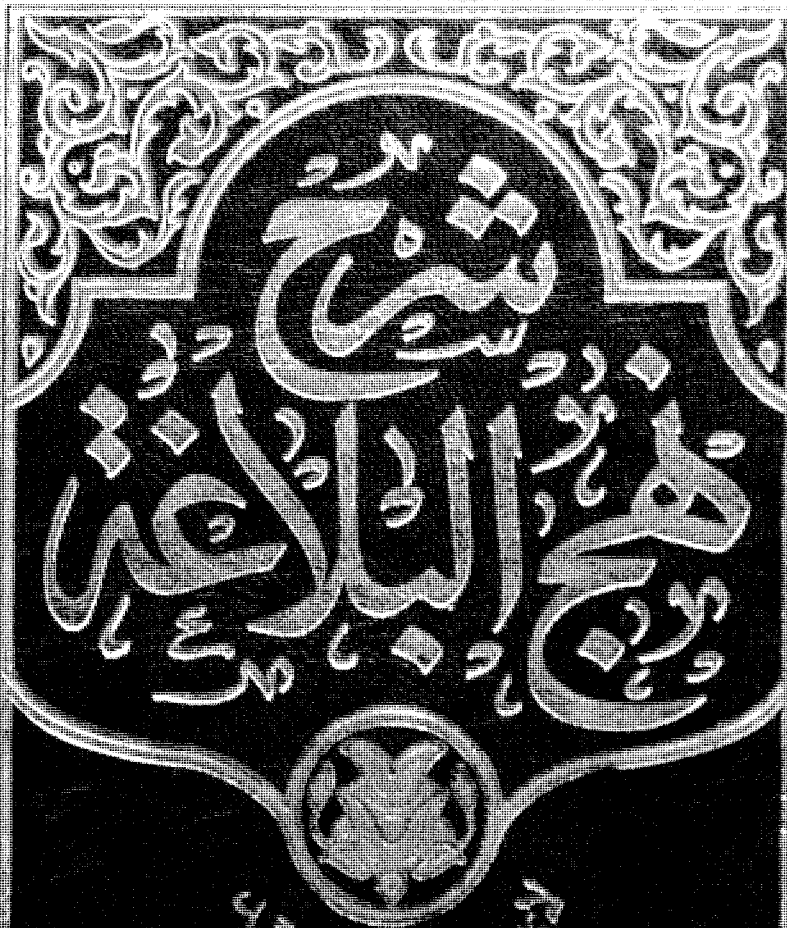 شرح
نهج البلاغة